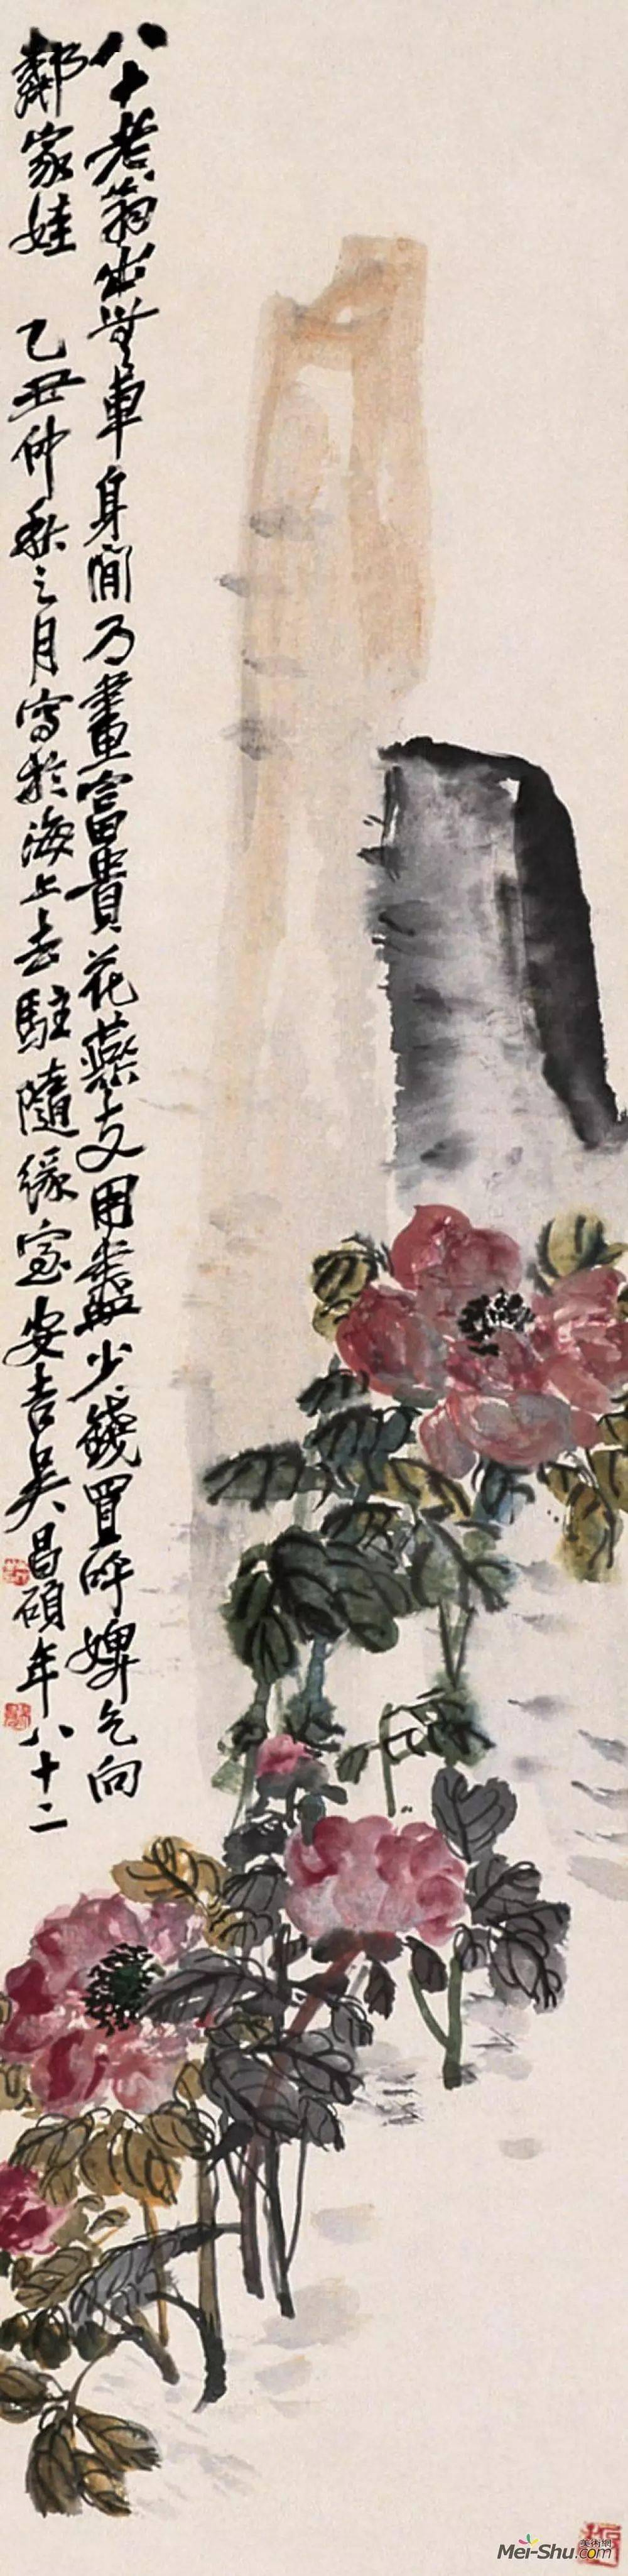 八十老翁出無車身閒乃畫富貴花燕支用盡少錢買呼婢乞向
鄰家娃 乙丑仲秋之月寫於海上去駐隨緣室安吉吳昌碩年八十二
美術網
Mei-Shu.com